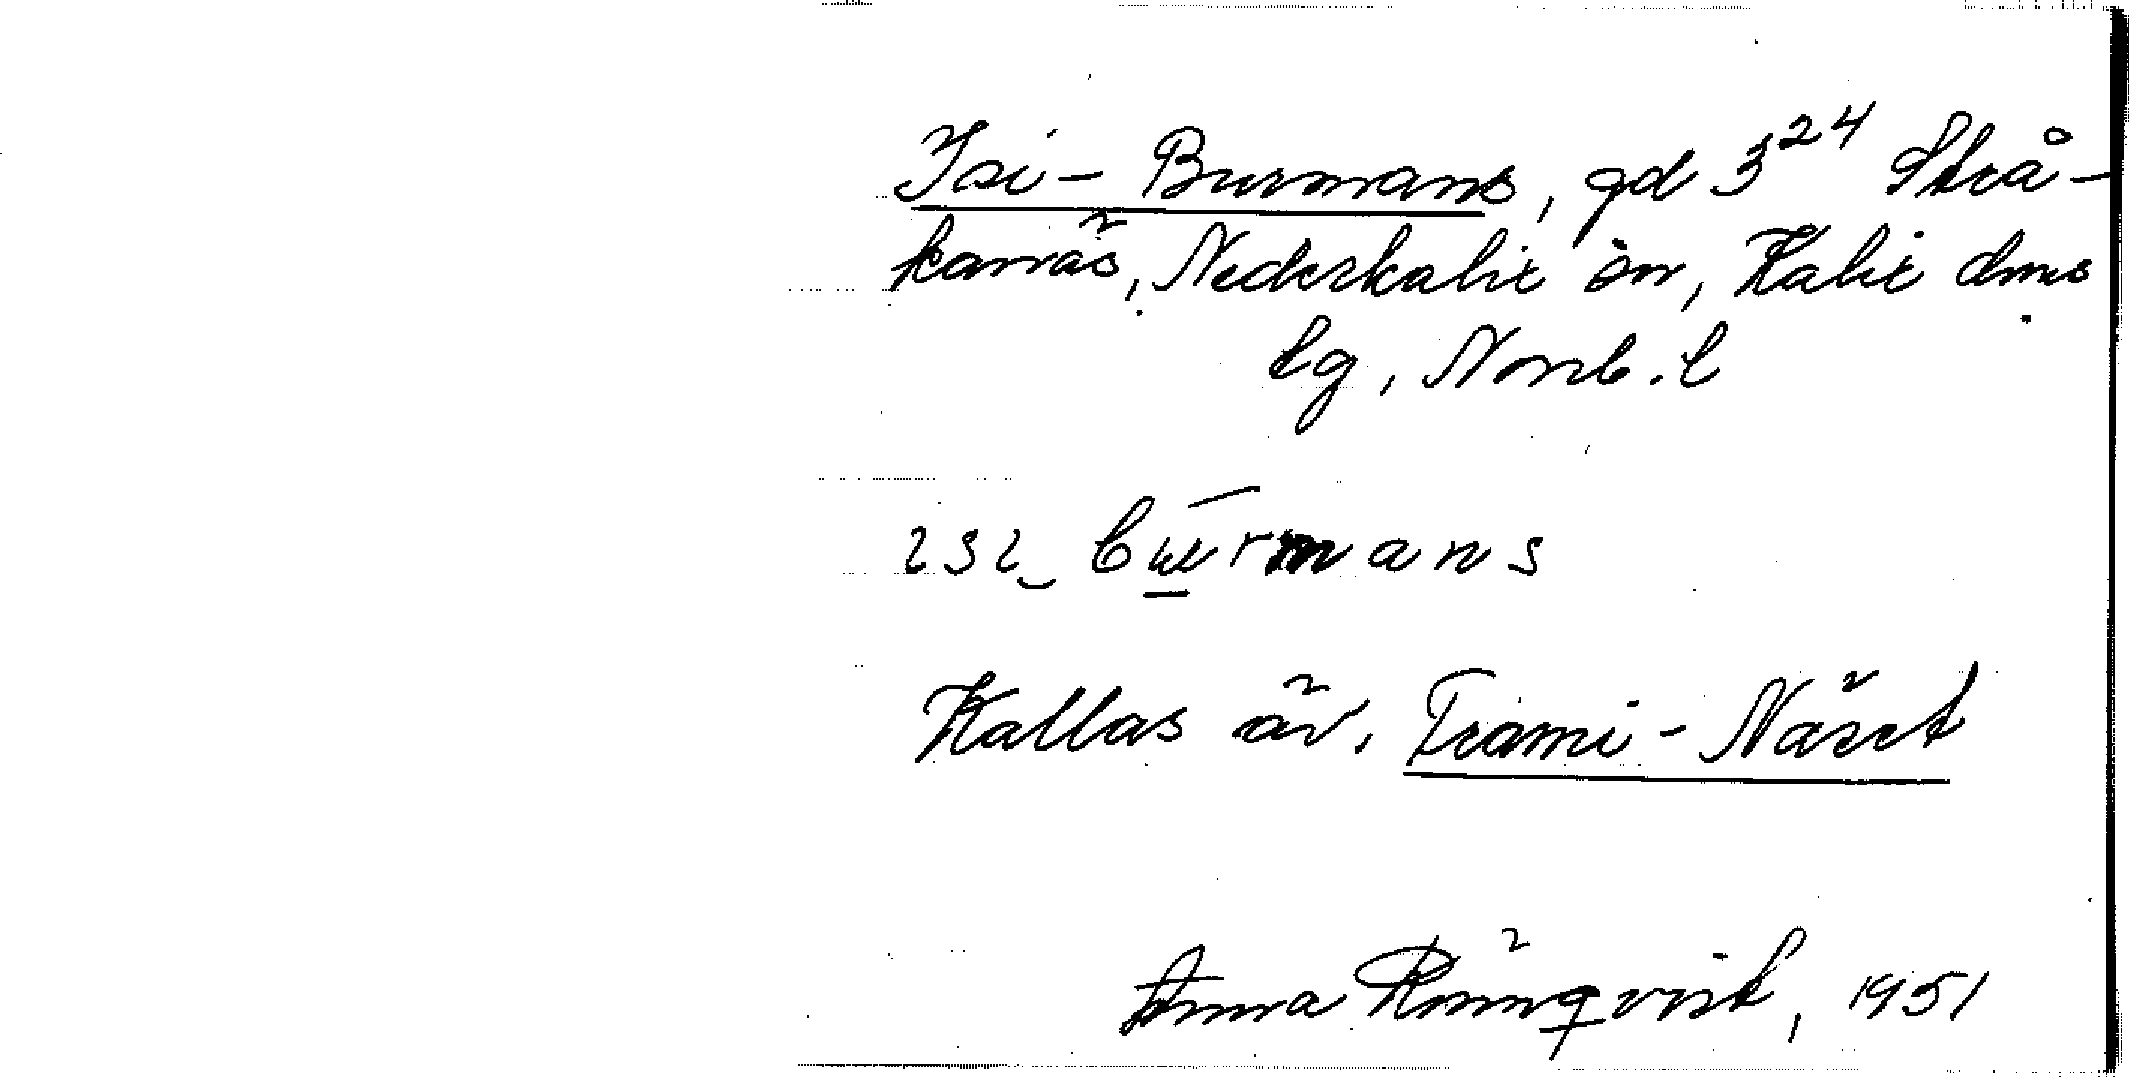 Isi-Burmans, gd 3²⁴ Strå-
kanäs, Nederkalix sn, Kalix dms
tg, Norrb. l
ɩsɩ‿bu̲rmans
Kallas äv. Främi-Näset
Anna Rönnqvist, 1951